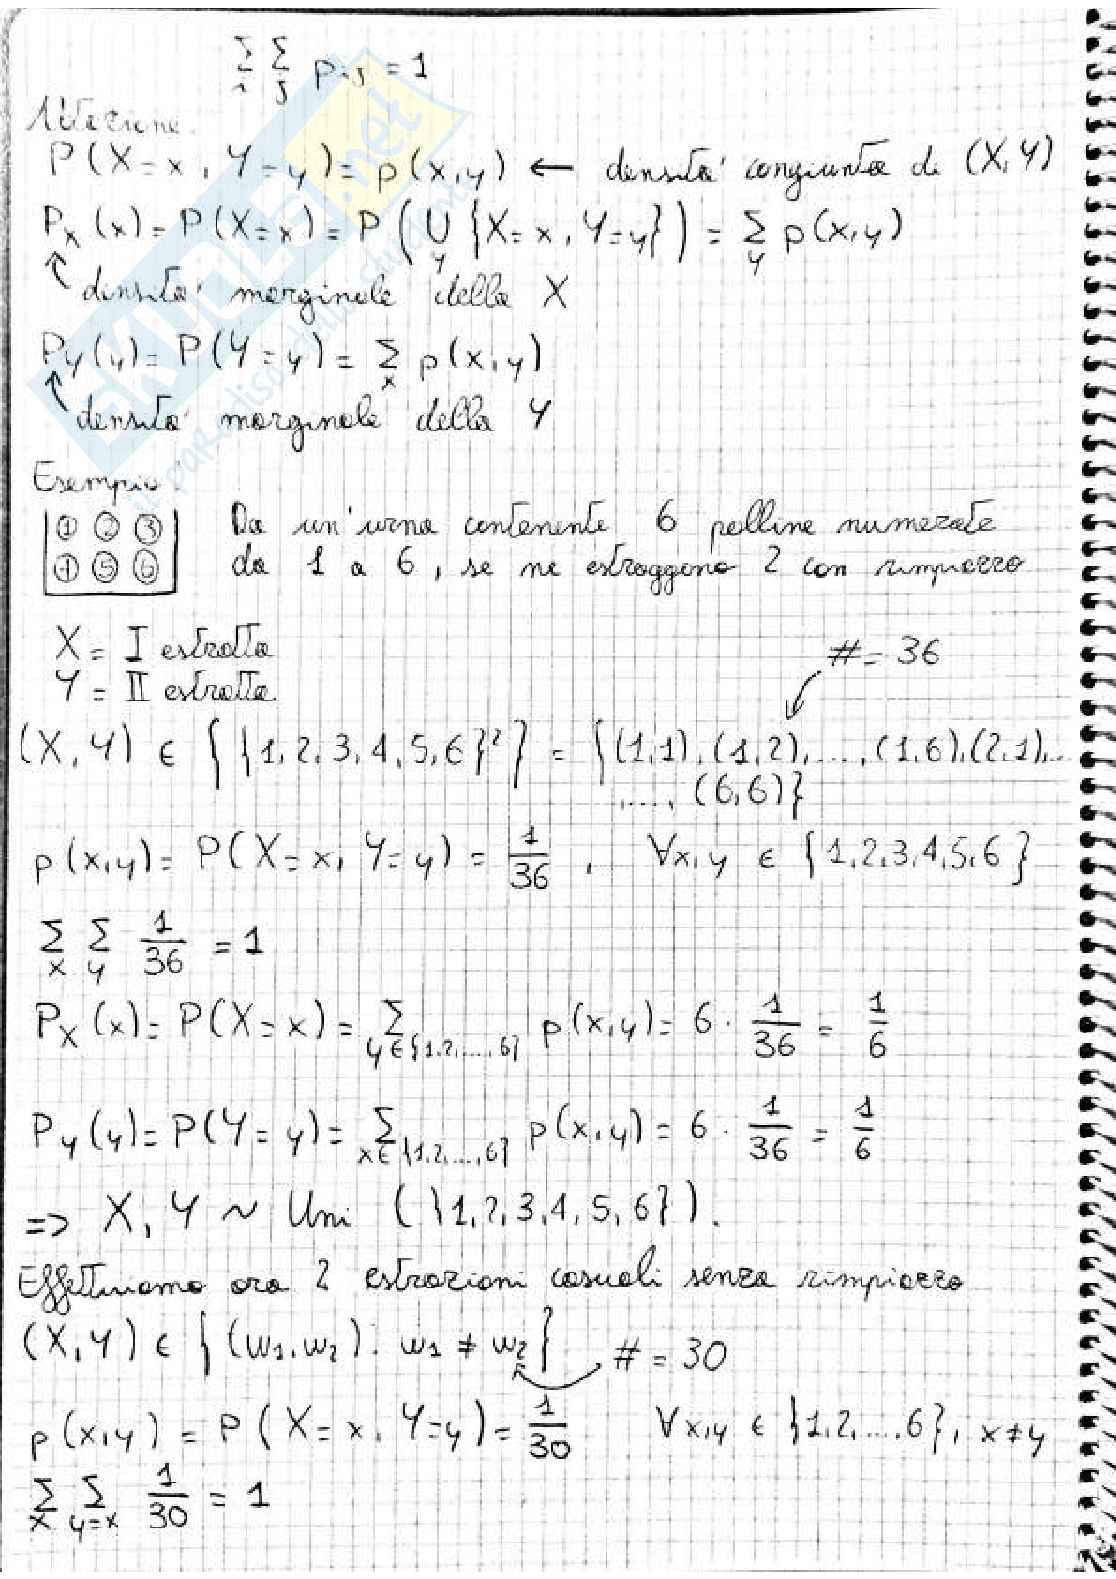 Σ_i Σ_j p_ij = 1
P(X=x, Y=y) = p(x,y) ← densità congiunta di (X,Y)
P_X(x) = P(X=x) = P(∪_y {X=x, Y=y}) = Σ_y p(x,y)
densità marginale della X
P_Y(y) = P(Y=y) = Σ_x p(x,y)
densità marginale della Y
Esempio.
1 2 3
4 5 6
Da un'urna contenente 6 palline numerate
da 1 a 6, se ne estraggono 2 con rimpiazzo
X = I estratta
Y = II estratta
# = 36
(X,Y) ∈ { {1,2,3,4,5,6}² } = {(1,1),(1,2),...,(1,6),(2,1),...
...., (6,6)}
p(x,y) = P(X=x, Y=y) = 1/36, ∀x,y ∈ {1,2,3,4,5,6}
Σ_x Σ_y 1/36 = 1
P_X(x) = P(X=x) = Σ_{y∈{1,2,...,6}} p(x,y) = 6 · 1/36 = 1/6
P_Y(y) = P(Y=y) = Σ_{x∈{1,2,...,6}} p(x,y) = 6 · 1/36 = 1/6
=> X, Y ~ Uni ({1,2,3,4,5,6}).
Effettuiamo ora 2 estrazioni casuali senza rimpiazzo
(X,Y) ∈ {(w₁,w₂): w₁ ≠ w₂} # = 30
p(x,y) = P(X=x, Y=y) = 1/30 ∀x,y ∈ {1,2,...,6}, x≠y
Σ_x Σ_{y=x} 1/30 = 1
SKUOLA.net